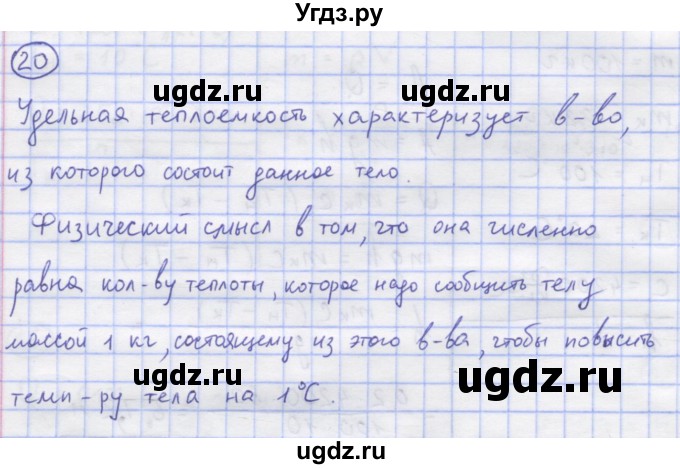 Угдз.ру
20
ugdz.ru ugdz.ru
Удельная теплоемкость характеризует в-во,
из которого состоит данное тело.
ugdz.ru ugdz.ru
Физический смысл в том, что она численно
равна кол-ву теплоты, которое надо сообщить телу
ugdz.ru ugdz.ru
массой 1 кг, состоящему из этого в-ва, чтобы повысить
темп-ру тела на 1°С.
ugdz.ru ugdz.ru
ugdz.ru